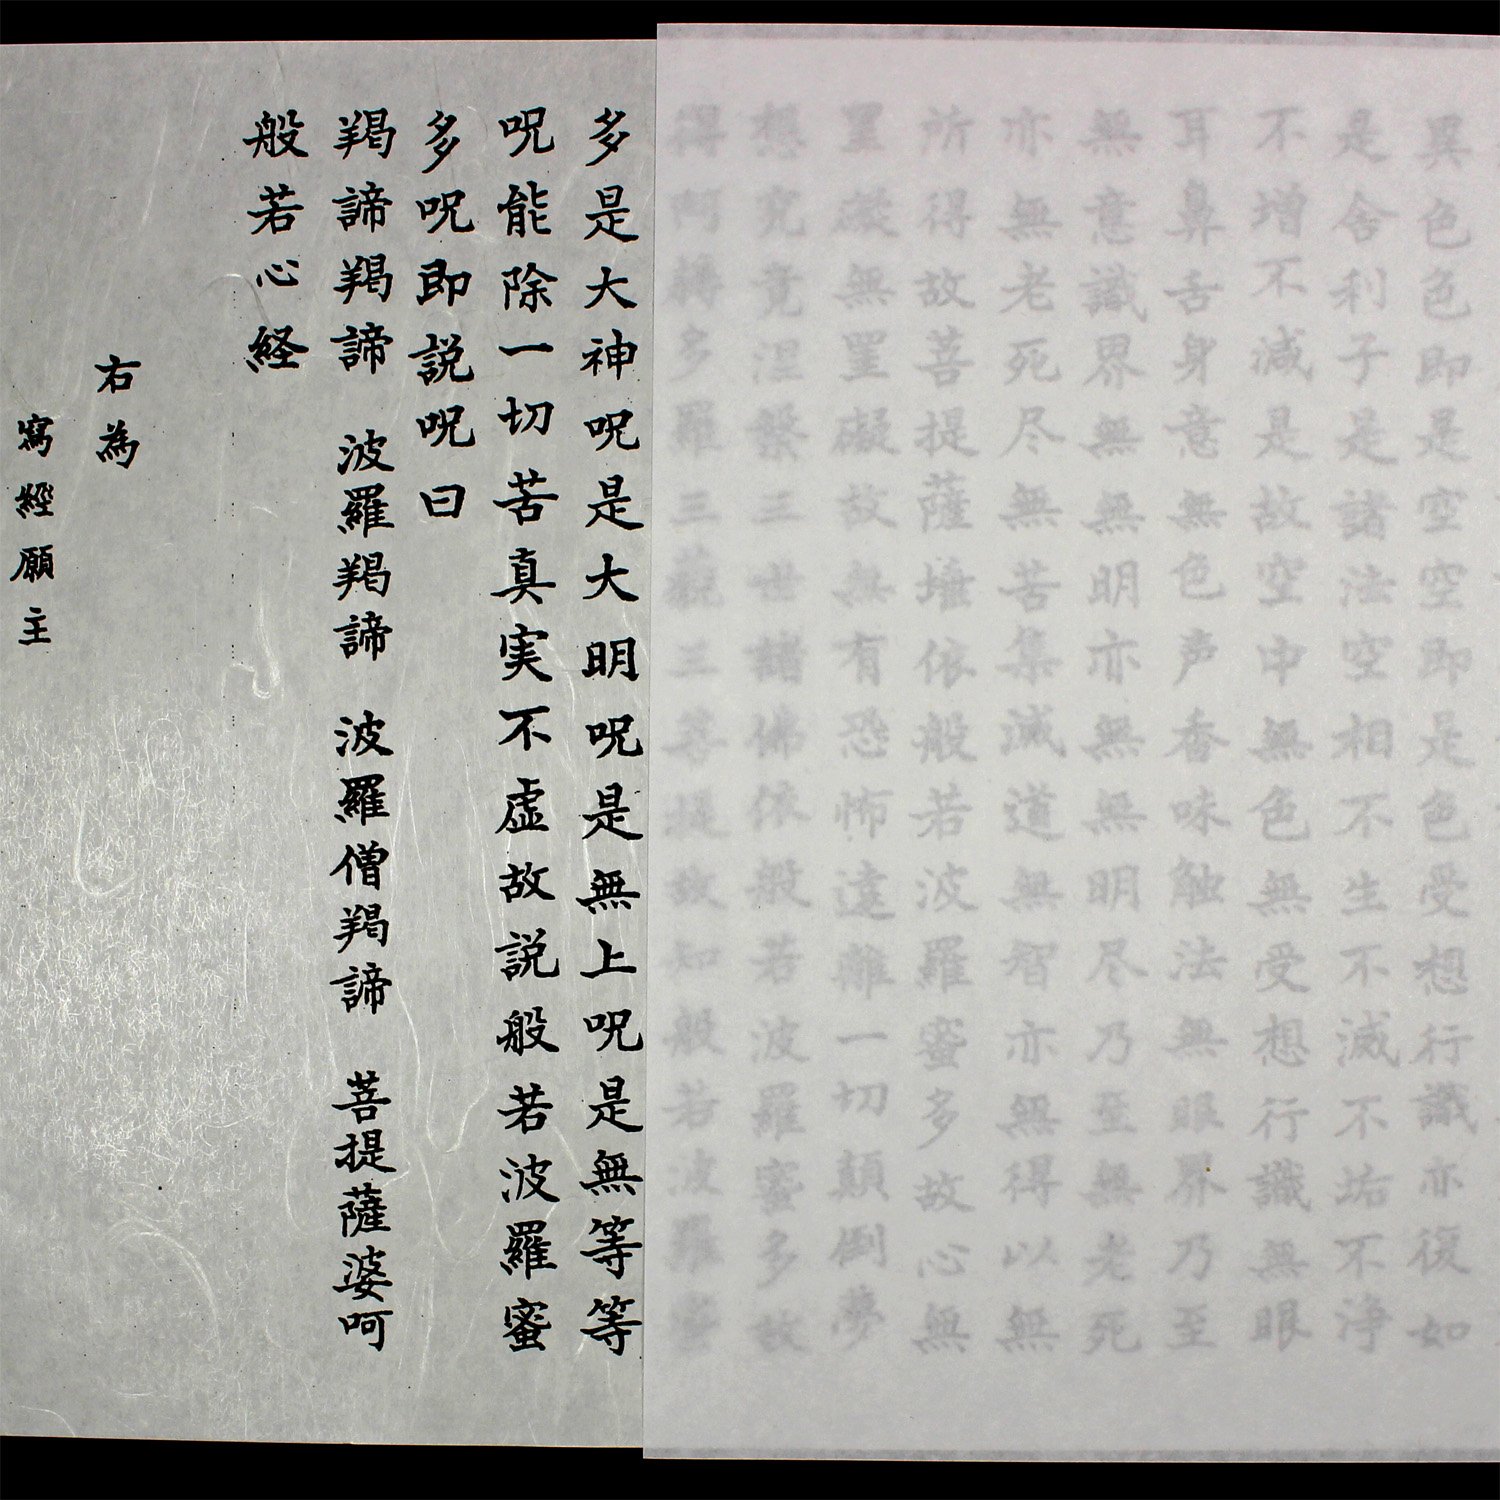 異色色即是空空即是色受想行識亦復如
是舎利子是諸法空相不生不滅不垢不浄
不増不減是故空中無色無受想行識無眼
耳鼻舌身意無色声香味触法無眼界乃至
無意識界無無明亦無無明尽乃至無老死
亦無老死尽無苦集滅道無智亦無得以無
所得故菩提薩埵依般若波羅蜜多故心無
罣礙無罣礙故無有恐怖遠離一切顛倒夢
想究竟涅槃三世諸佛依般若波羅蜜多故
得阿耨多羅三藐三菩提故知般若波羅蜜
多是大神呪是大明呪是無上呪是無等等
呪能除一切苦真実不虚故説般若波羅蜜
多呪即説呪曰
羯諦羯諦 波羅羯諦 波羅僧羯諦 菩提薩婆呵
般若心経
右為
寫經願主